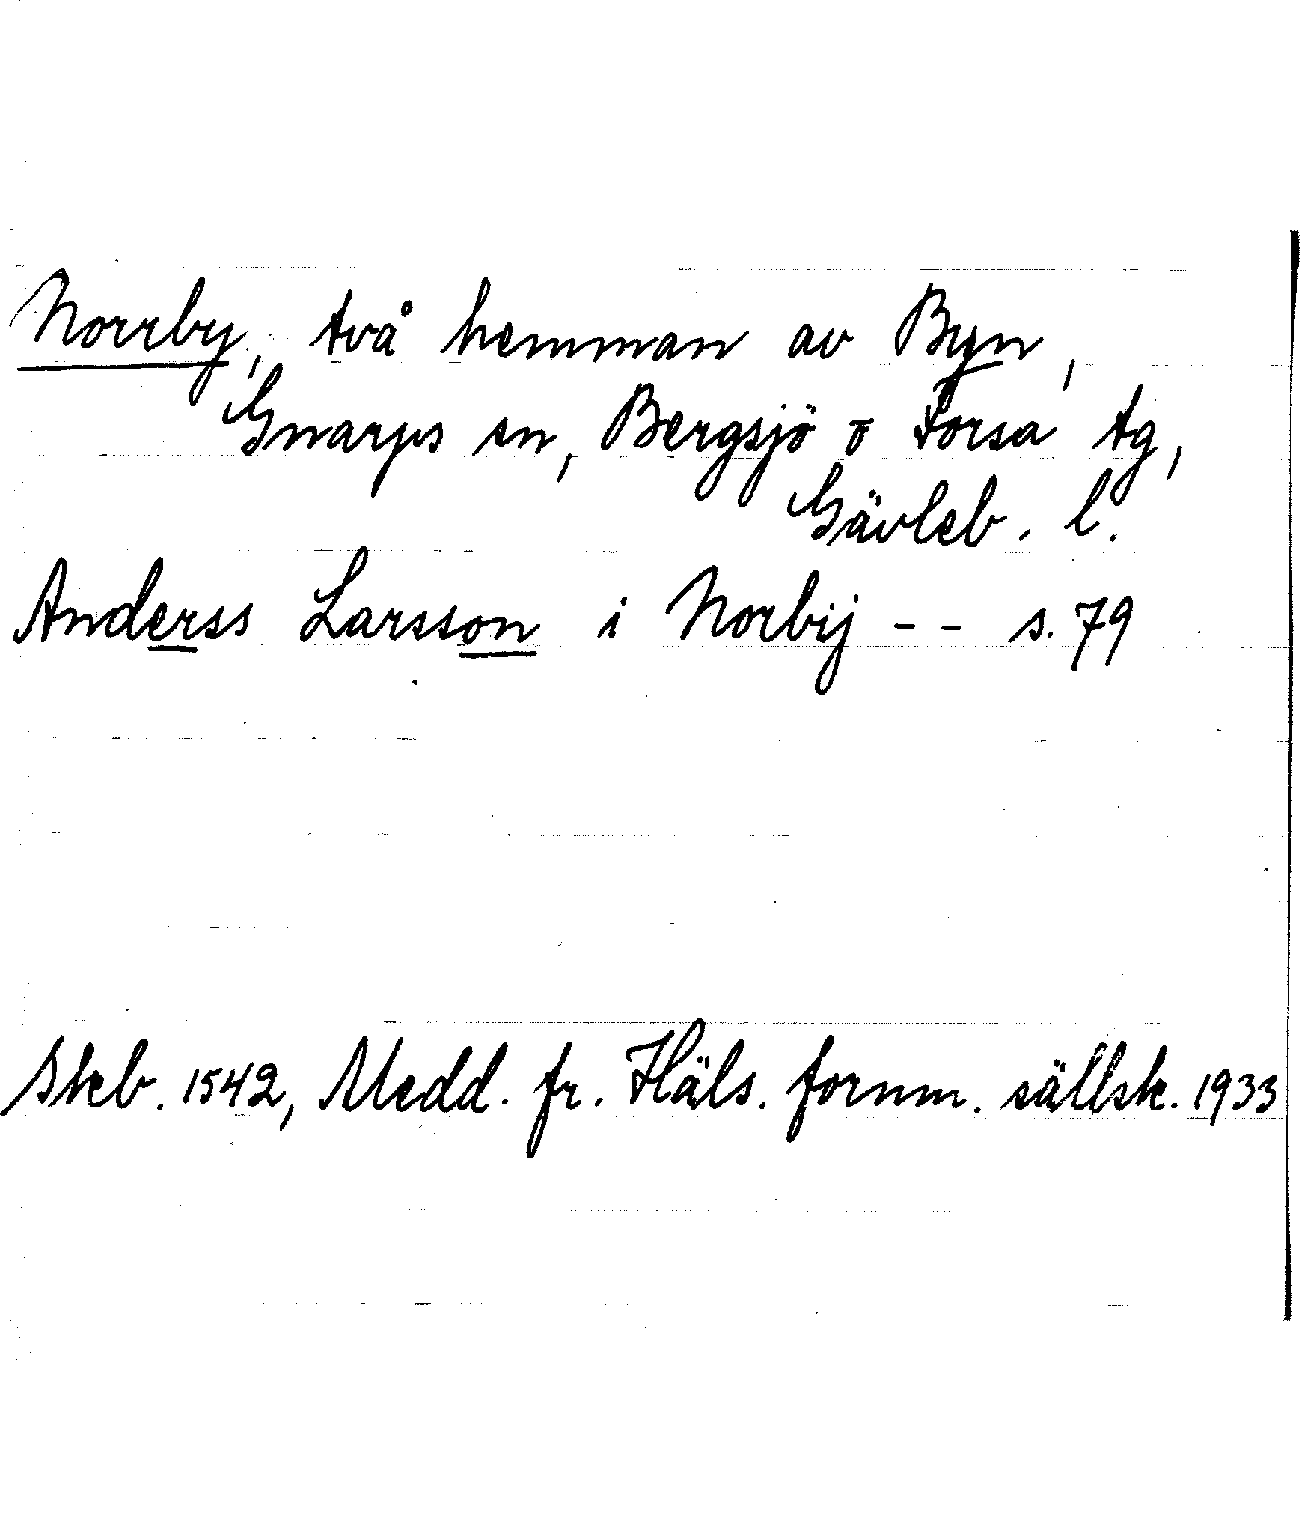 Norrby, två hemman av Byn,
Gnarps sn, Bergsjö o Forsa tg,
Gävleb. l.
Anderss Larsson i Norbij -- s. 79
Skb. 1542, Medd. fr. Häls. fornm. sällsk. 1933